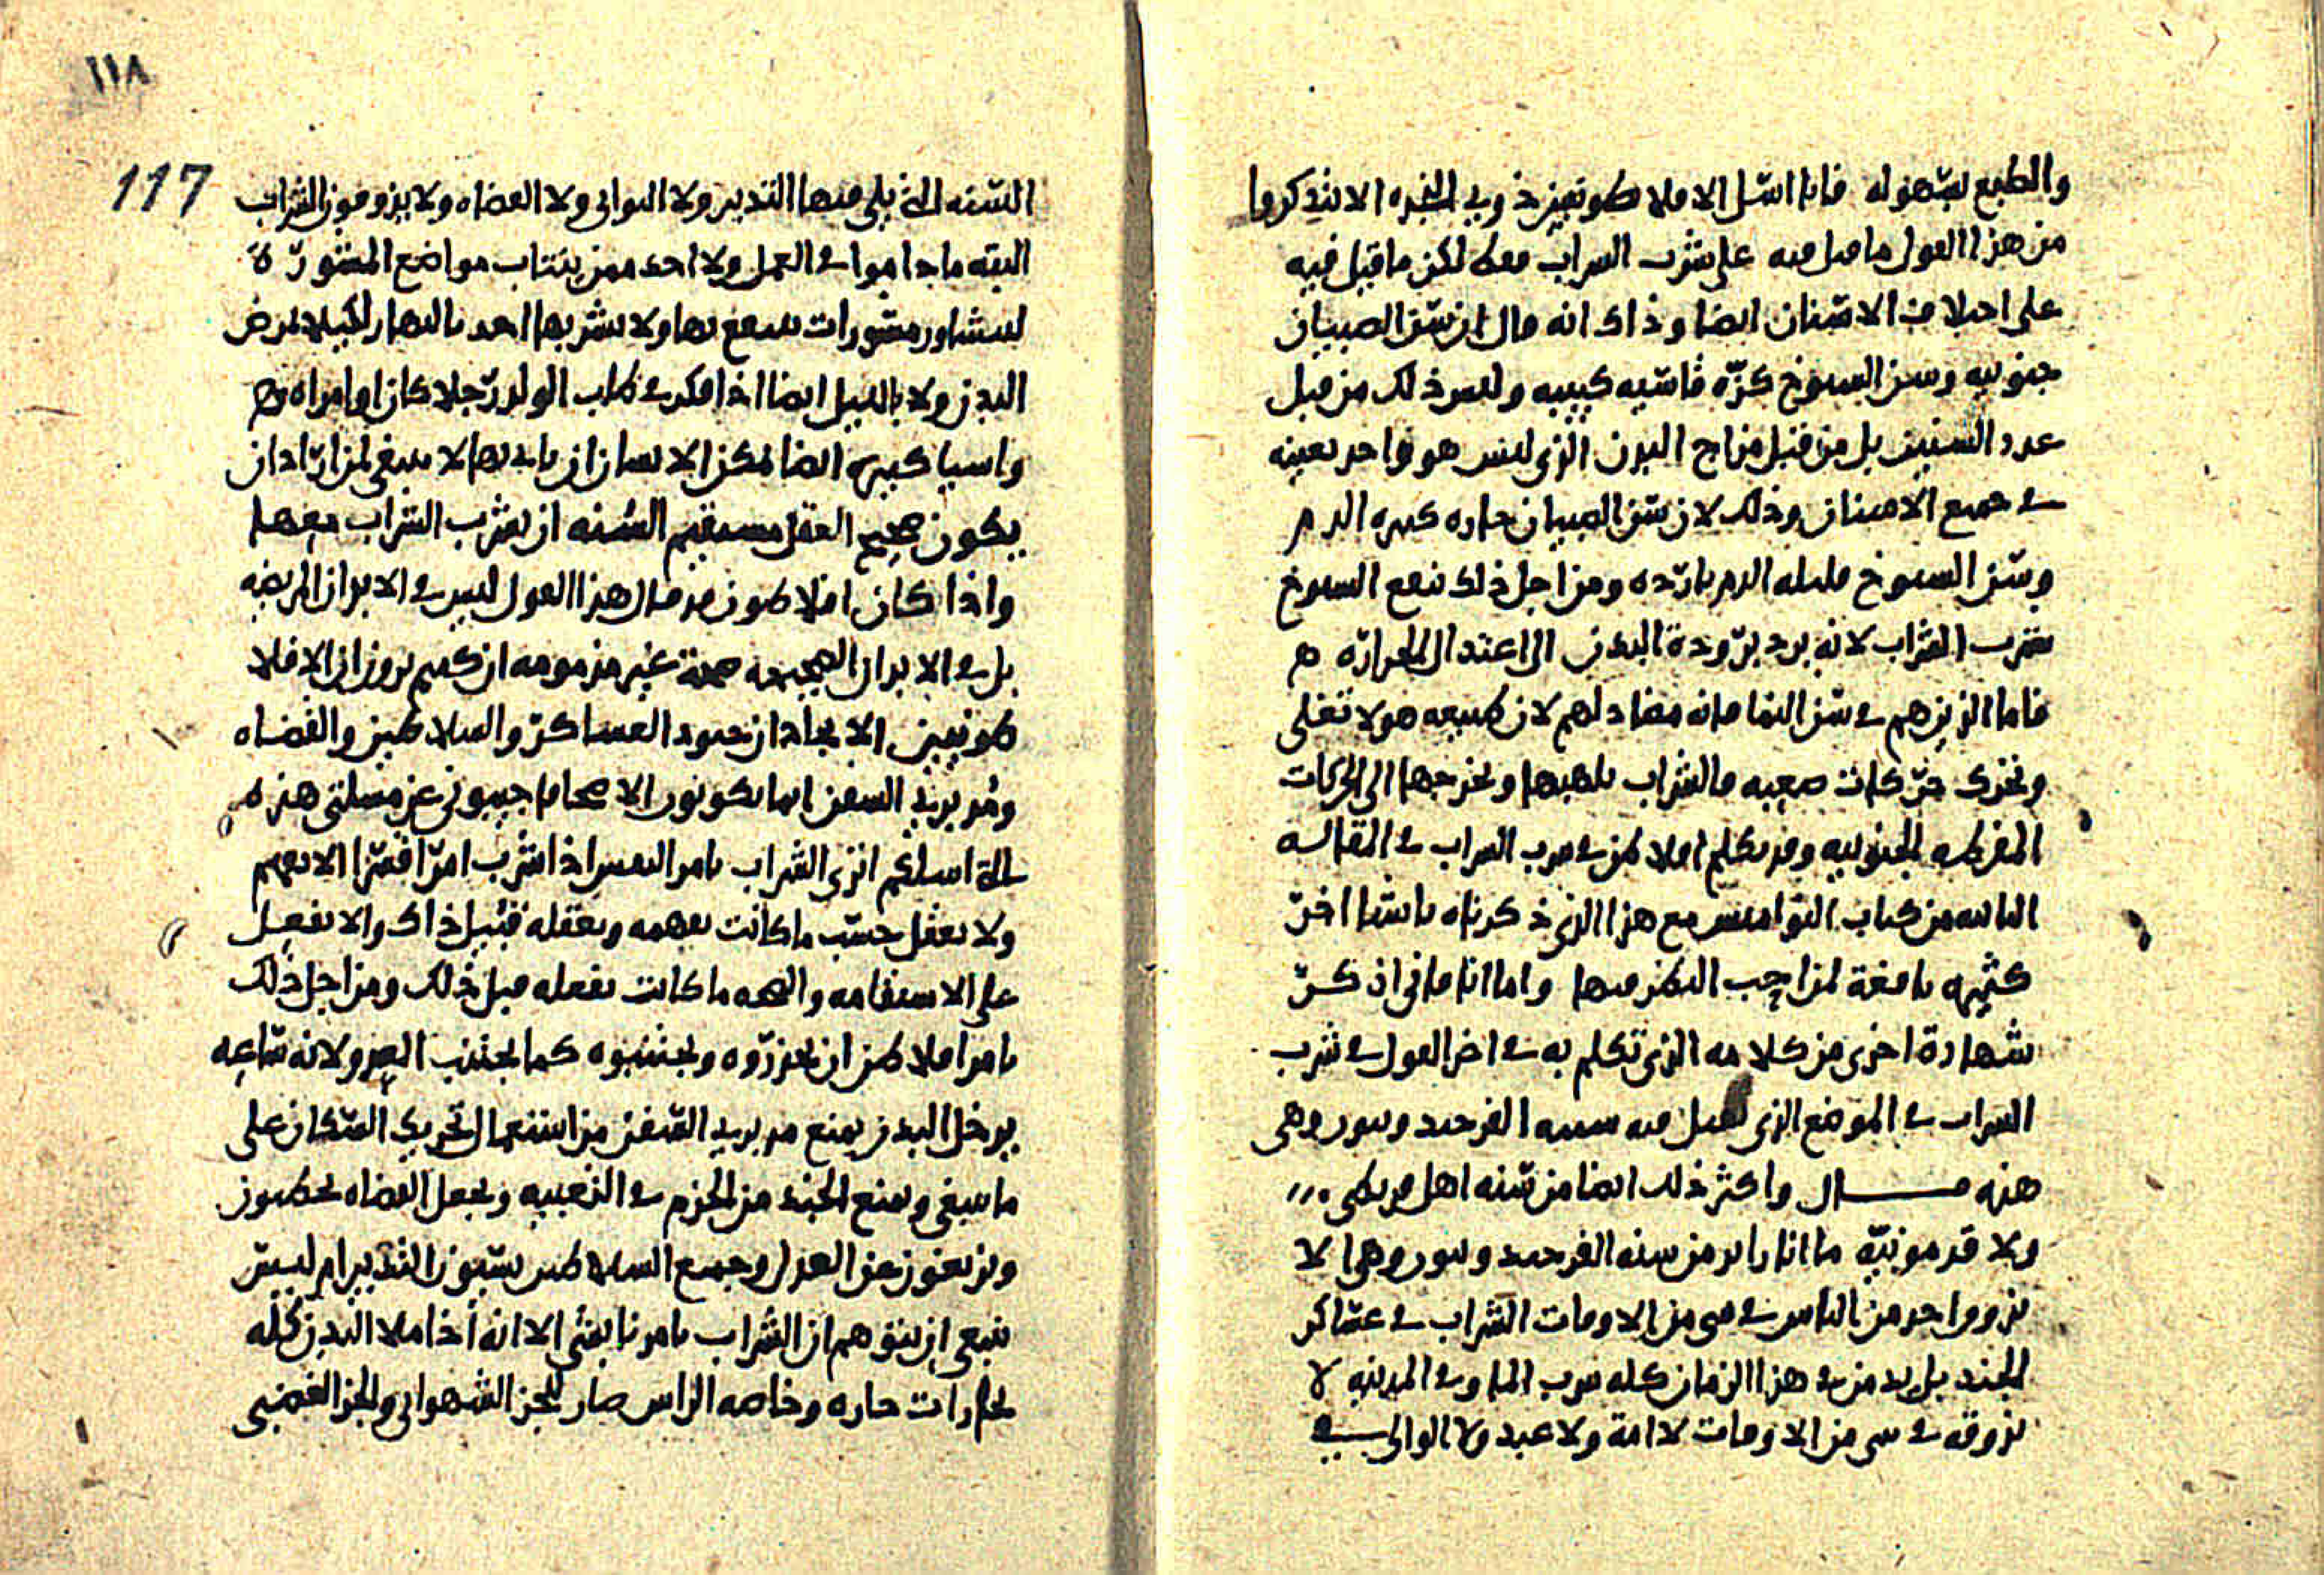 والطبع بسهوله فانا اسل الافلاطونيين ذوي الخبره الا يذكروا
من هذا القول ما قيل فيه على شرب الشراب فقط لكن ما قيل فيه
على اختلاف الاسنان ايضا وذاك انه قال ان سن الصبيان
جنونيه وسن الشيوخ كزه قاسيه كييبه وليس ذلك من قبل
عدد السنين بل من قبل مزاج البدن الذي ليس هو واحد بعينه
في جميع الاسنان وذلك لان سن الصبيان حاره كثيره الدم
وسن الشيوخ قليله الدم بارده ومن اجل ذلك ينفع الشيوخ
شرب الشراب لانه يرد برودة البدن الى اعتدال الحراره
فاما الذين هم في سن النما فانه مضاد لهم لان طبيعه هولا تغلي
وتحرك حركات صعبه فالشراب يلهبها ويخرجها الى الحركات
المفرطه الجنونيه وقد تكلم افلاطن في شرب الشراب في المقاله
الثانيه من كتاب النواميس مع هذا الذي ذكرناه باشيا اخر
كثيره نافعة لمن احب النظر فيها واما انا فاني اذكر
شهادة اخرى من كلامه الذي تكلم به في اخر القول في شرب
الشراب في الموضع الذي قيل فيه سنه الفرحيد وسور وهي
هذه قال واكثر ذلك ايضا من سنه اهل قريطي
ولا قدمونيه ما انا رابر من سنه الفرحيد وسور وهي الا
يذوق واحد من الناس في شي من الاوقات الشراب في عساكر
الجند بل يدمن في هذا الزمان كله شرب الما وفي المدينه لا
يذوقه في شي من الاوقات لا امة ولا عبد ولا الوالي في
١١٨
117
السنه التي يلي فيها التدبير ولا النواتي ولا القضاه ولا يذوقون الشراب
البته ما داموا في العمل ولا احد ممن ينتاب مواضع المشورة
ليشاور مشورات ينتفع بها ولا يشربها احد بالنهار لكيلا يمرض
البدن ولا بالليل ايضا اذا فكر في طلب الولد رجلا كان او امراه وهم
واشيا كثيره ايضا يمكن الانسان ان ياتي بها لا ينبغي لمن اراد ان
يكون صحيح العقل مستقيم السنه ان يشرب الشراب معها
واذا كان افلاطون قد قال هذا القول ليس في الابدان المريضه
بل في الابدان الصحيحه صحة غير مذمومه ان كنتم ترون ان الافلا
طونيين الانجاد ان جنود العساكر والسلاطين والقضاه
ومدبري السفن انما يكونون الاصحا فاجيبوني عن مسلتي هذه
التي اسلكم اترى الشراب يامر النفس اذا شرب امرا قسرا الا تفهم
ولا تعقل حسب ما كانت تفهمه وتعقله قبيل ذاك والا تفعل
على الاستقامه والصحه ما كانت تفعله قبل ذلك ومن اجل ذلك
يامر افلاطن ان يحذروه ويجتنبوه كما يجتنب العدو لانه ساعه
يدخل البدن يمنع مدبري السفن من استعمال تحريك السكان على
ما ينبغي ويمنع الجند من الحزم في التعبيه ويجعل القضاه يخطون
ويزيغون عن العدل وجميع السلاطين يسيون التدبير ام ليس
ينبغي ان يتوهم ان الشراب يامرنا بشي الا انه اذا ملا البدن كله
بخارات حاره وخاصه الراس صار للجز الشهواني والجز الغضبي